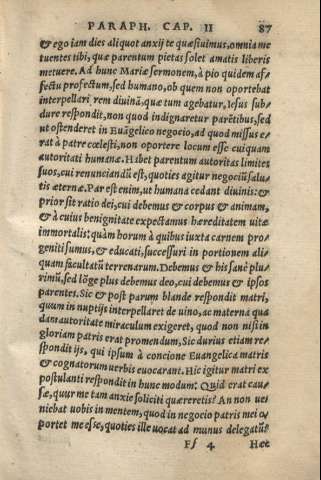 PARAPH. CAP. II 87
& ego iam dies aliquot anxij te quæsiuimus, omnia me
tuentes tibi, quæ parentum pietas solet amatis liberis
metuere. Ad hunc Mariæ sermonem, à pio quidem af-
fectu profectum, sed humano, ob quem non oportebat
interpellari rem diuinã, quæ tum agebatur, Iesus sub-
dure respondit, non quod indignaretur parẽtibus, sed
ut ostenderet in Euãgelico negocio, ad quod missus e-
rat à patre cœlesti, non oportere locum esse cuiquam
autoritati humanæ. Habet parentum autoritas limites
suos, cui renunciandũ est, quoties agitur negociũ salu-
tis æternæ. Par est enim, ut humana cedant diuinis: &
prior sit ratio dei, cui debemus & corpus & animam,
& à cuius benignitate expectamus hæreditatem uitæ
immortalis: quàm horum à quibus iuxta carnem pro-
geniti sumus, & educati, successuri in portionem ali-
quam facultatũ terrenarum. Debemus & his sanè plu-
rimũ, sed lõge plus debemus deo, cui debemus & ipsos
parentes. Sic & post parum blande respondit matri,
quum in nuptijs interpellaret de uino, ac materna qua
dam autoritate miraculum exigeret, quod non nisi in
gloriam patris erat promendum, Sic durius etiam re-
spondit ijs, qui ipsum à concione Euangelica matris
& cognatorum uerbis euocarant. Hic igitur matri ex
postulanti respondit in hunc modum: Quid erat cau-
sæ, quur me tam anxie soliciti quæreretis? An non ue
niebat uobis in mentem, quod in negocio patris mei o-
portet me esse, quoties ille uocat ad munus delegatũ?
Ff 4 Hæc